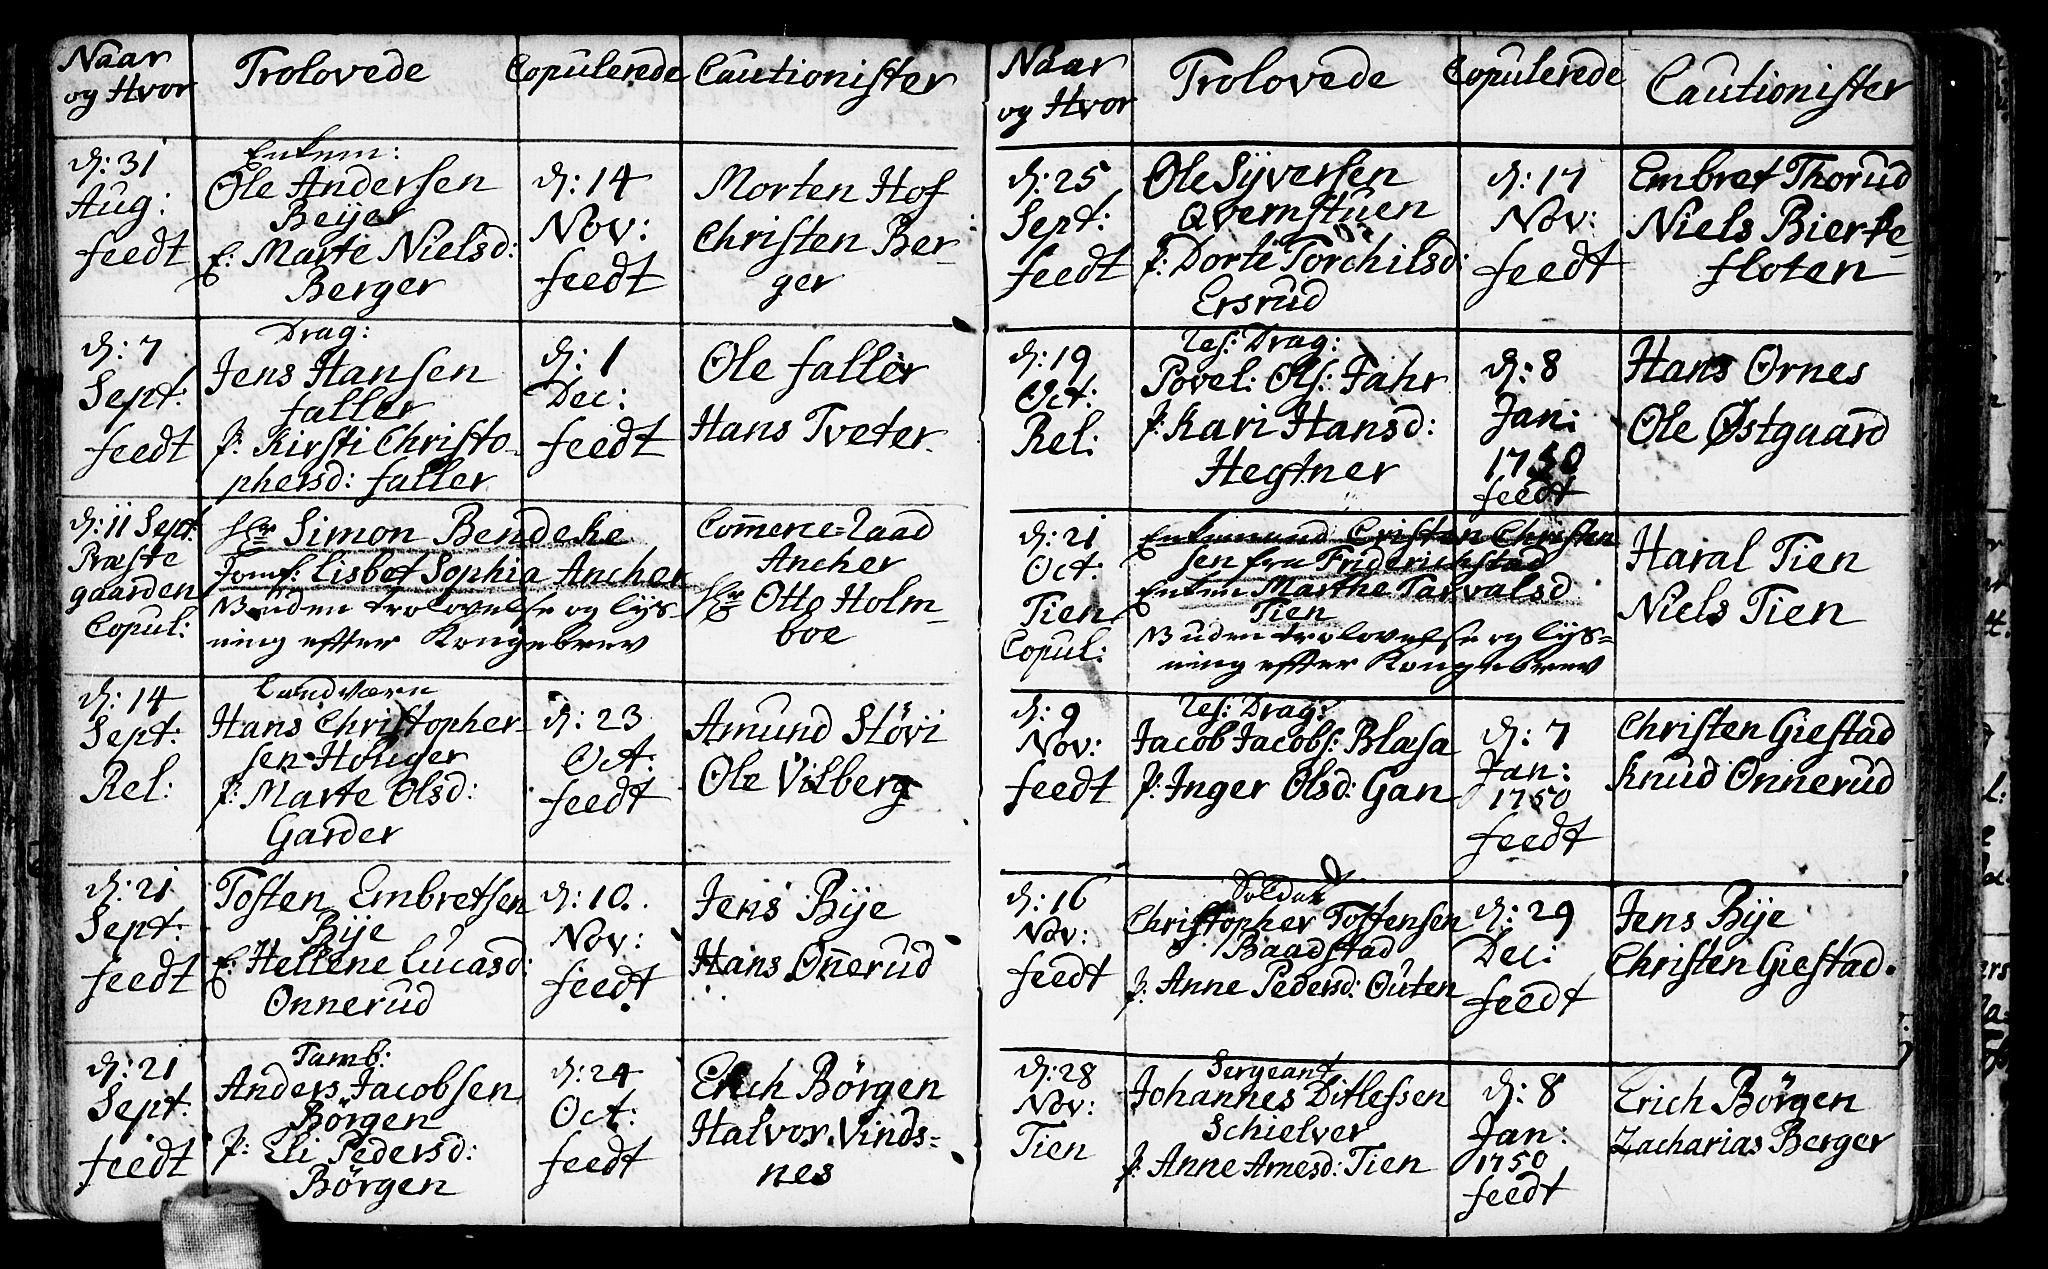 Naar
og Hvor
Trolovede
Copulerede
Cautionister
d: 31
Aug:
feedt
Enkem:
Ole Andersen
Beÿer
E: Marte Nielsd:
Berger
d: 14
Nov:
feedt
Morten Hof
Christen Ber-
ger
d: 7
Sept:
feedt
Drag:
Jens Hansen
faller
P: Kirsti Christo-
phersd: faller
d: 1
Dec:
feedt
Ole faller
Hans Tveter
d: 11 Sept:
Præste
gaarden
Copul:
Hr Simon Bendeke
Jomf: Lisbet Sophia Ancher
NB uden trolovelse og lys-
ning efter Kongebrev
Com̄erce-Raad
Ancher
Hr Otto Holm-
boe
d: 14
Sept:
Rel:
Landværn
Hans Christopher-
sen Holiger
P: Marte Olsd:
Garder
d: 23
Oct:
feedt
Amund Störi
Ole Vilberg
d: 21
Sept:
feedt
Tosten Embretsen
Bije
E: Hellene Lucasd:
Onnerud
d: 10.
Nov:
feedt
Jens Bije
Hans On̄erud
d: 21
Sept:
feedt
Tamb:
Anders Jacobsen
Börgen
P: Eli Pedersd:
Börgen
d: 24
Oct:
feedt
Erich Börgen
Halvor Vinds-
nes
Naar
og Hvor
Trolovede
Copulerede
Cautionister
d: 25
Sept:
feedt
Ole Sÿversen
Qvernstuen
P: Dorte Torchilsd:
Ersrud
d: 17
Nov:
feedt
Embret Thorud
Niels Bierke-
floten
d: 19
Oct:
Rel:
Res: Drag:
Povel: Ols: Fahr
P: Kari Hansd:
Hegtner
d: 8
Jan:
1750
feedt
Hans Ornes
Ole Østgaard
d: 21
Oct:
Tien
Copul:
Enkemand Cristen Christen
sen fra Friderichstad
Enken Marthe Tarvalsd
Tien
NB uden trolovelse og lys-
ning efter Kongebrev
Haral Tien
Niels Tien
d: 9
Nov:
feedt
Res: Drag:
Jacob Jacobs: Blæsa
P: Inger Olsd: Gan
d: 7
Jan:
1750
feedt
Christen Giestad
Knud Onnerud
d: 16
Nov:
feedt
Soldat
Christopher Tostensen
Baadstad
P: Anne Pedersd: Outen
d: 29
Dec:
feedt
Jens Bije
Christen Giestad.
d: 28
Nov:
Tien
Sergeant
Johannes Ditlefsen
Schielver
P: Anne Arnesd: Tien
d: 8
Jan:
1750
feedt
Erich Börgen
Zacharias Berger